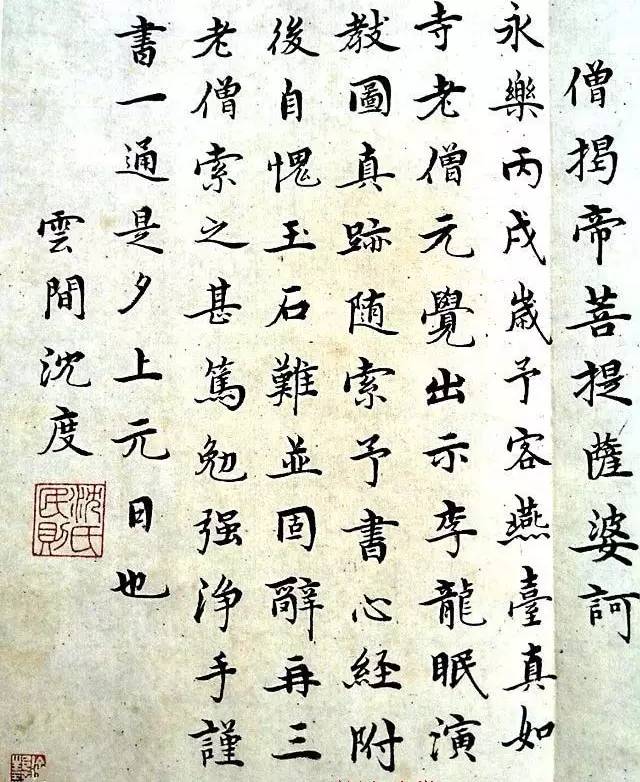 僧揭帝菩提薩婆訶
永樂丙戌歲予客燕臺真如
寺老僧元覺出示李龍眠演
教圖真跡随索予書心經附
後自愧玉石難並固辭再三
老僧索之甚篤勉强淨手謹
書一通是夕上元日也
雲間沈度
沈氏民則